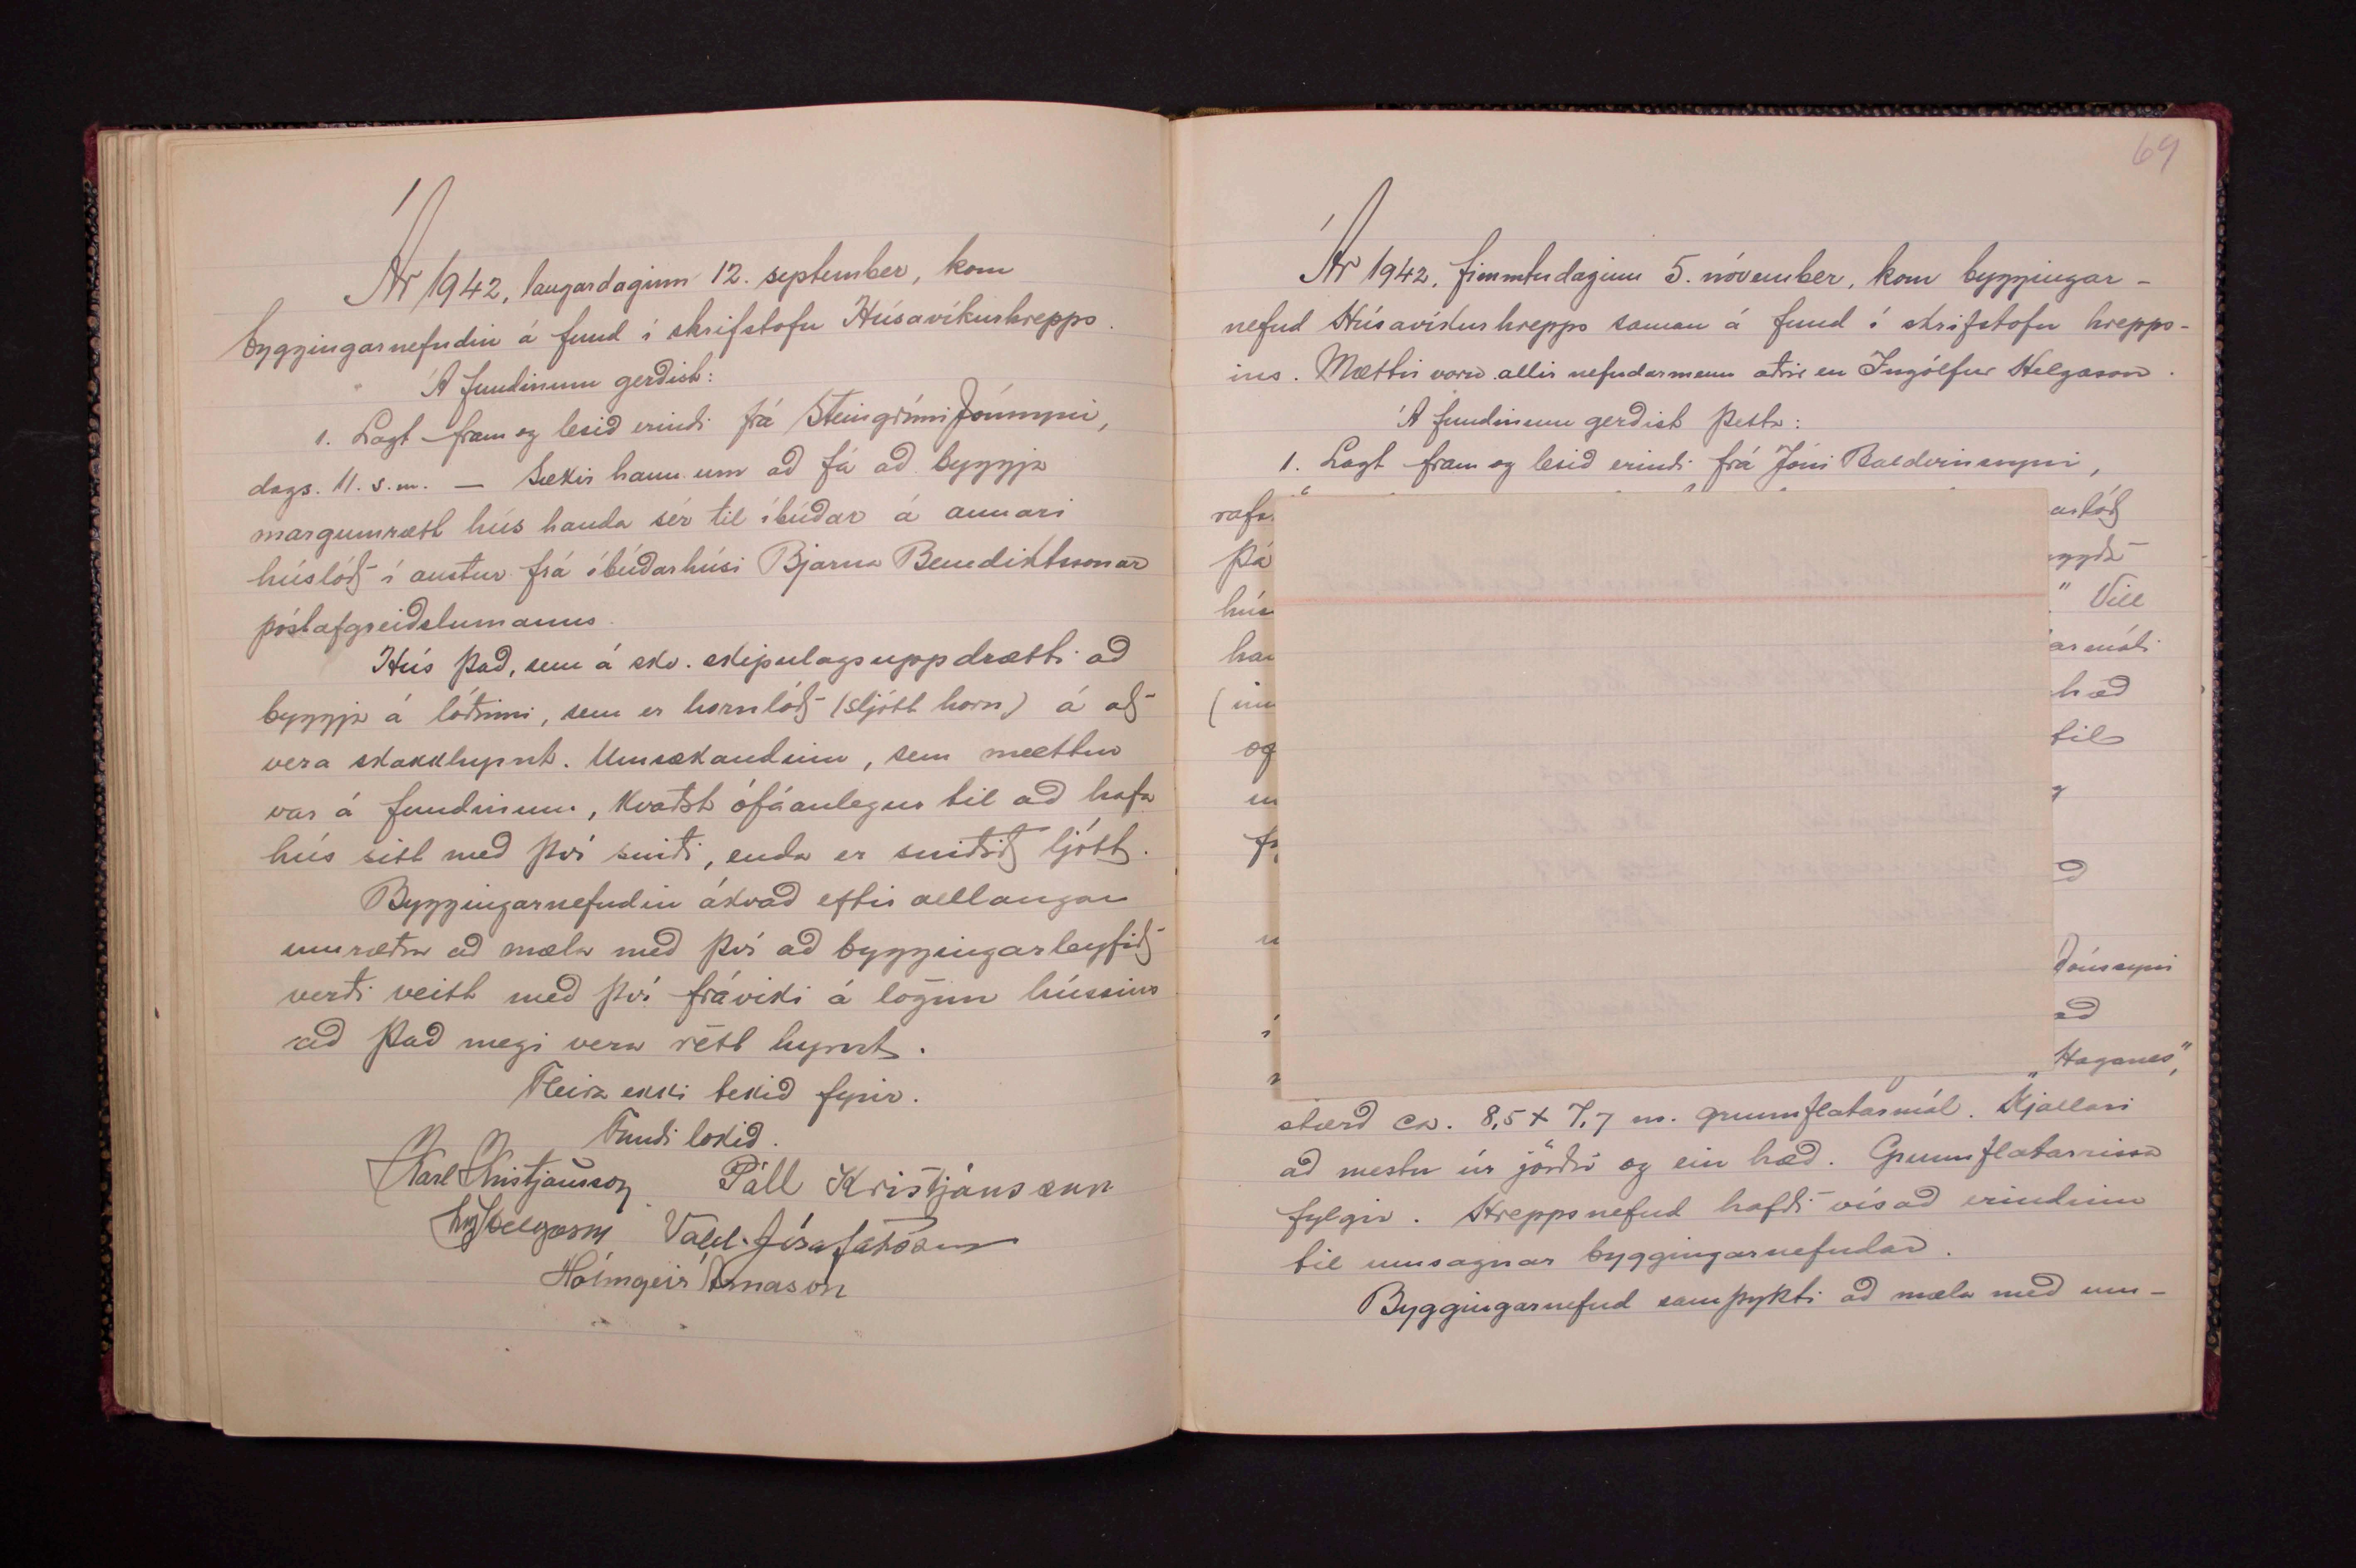 Ár 1942, laugardaginn 12. september, kom
byggingarnefndin á fund í skrifstofu Húsavíkurhrepps.
Á fundinum gerðist:
1. Lagt fram og lesið erindi frá Steingrími Jónssyni,
dags. 11. s.m. — Sækir hann um að fá að byggja
margumrætt hús handa sér til íbúðar á annari
húslóð í austur frá íbúðarhúsi Bjarna Benediktssonar
póstafgreiðslumanns.
Hús það, sem á skv. skipulagsuppdrætti að
byggja á lóðinni, sem er hornlóð (sljótt horn) á að
vera skakkhyrnt. Umsækandinn, sem mættur
var á fundinum, kvaðst ófáanlegur til að hafa
hús sitt með því sniði, enda er sniðið ljótt.
Byggingarnefndin ákvað eftir alllangar
umræður að mæla með því að byggingarleyfið
verði veitt með því fráviki á lögun hússins
að það megi vera rétt hyrnt.
Fleira ekki tekið fyrir.
Fundi lokið.
Karl Kristjánsson Páll Kristjánsson
Ing Helgason Vald. Jósafatsson
Hólmgeir Árnason
69
Ár 1942, fimmtudaginn 5. nóvember, kom byggingar-
nefnd Húsavíkurhrepps saman á fund í skrifstofu hrepps-
ins. Mættir voru allir nefndarmenn aðrir en Ingólfur Helgason.
Á fundinum gerðist þetta:
1. Lagt fram og lesið erindi frá Jóni Baldvinssyni,
rafs
Þá
hús " Vill
han armáli
(inn hæð
og til
Jónssyni
að
„Haganes",
stærð ca. 8,5 x 7,7 m. grunnflatarmál. Kjallari
að mestu úr jörðu og ein hæð. Grunnflatarrissa
fylgir. Hreppsnefnd hafði vísað erindinu
til umsagnar byggingarnefndar.
Byggingarnefnd samþykti að mæla með um-